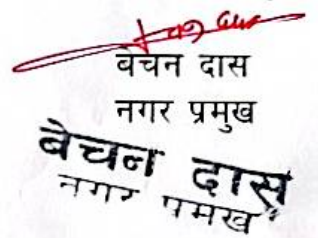 बेचन दास
नगर प्रमुख
बेचन दास
नगर प्रमुख